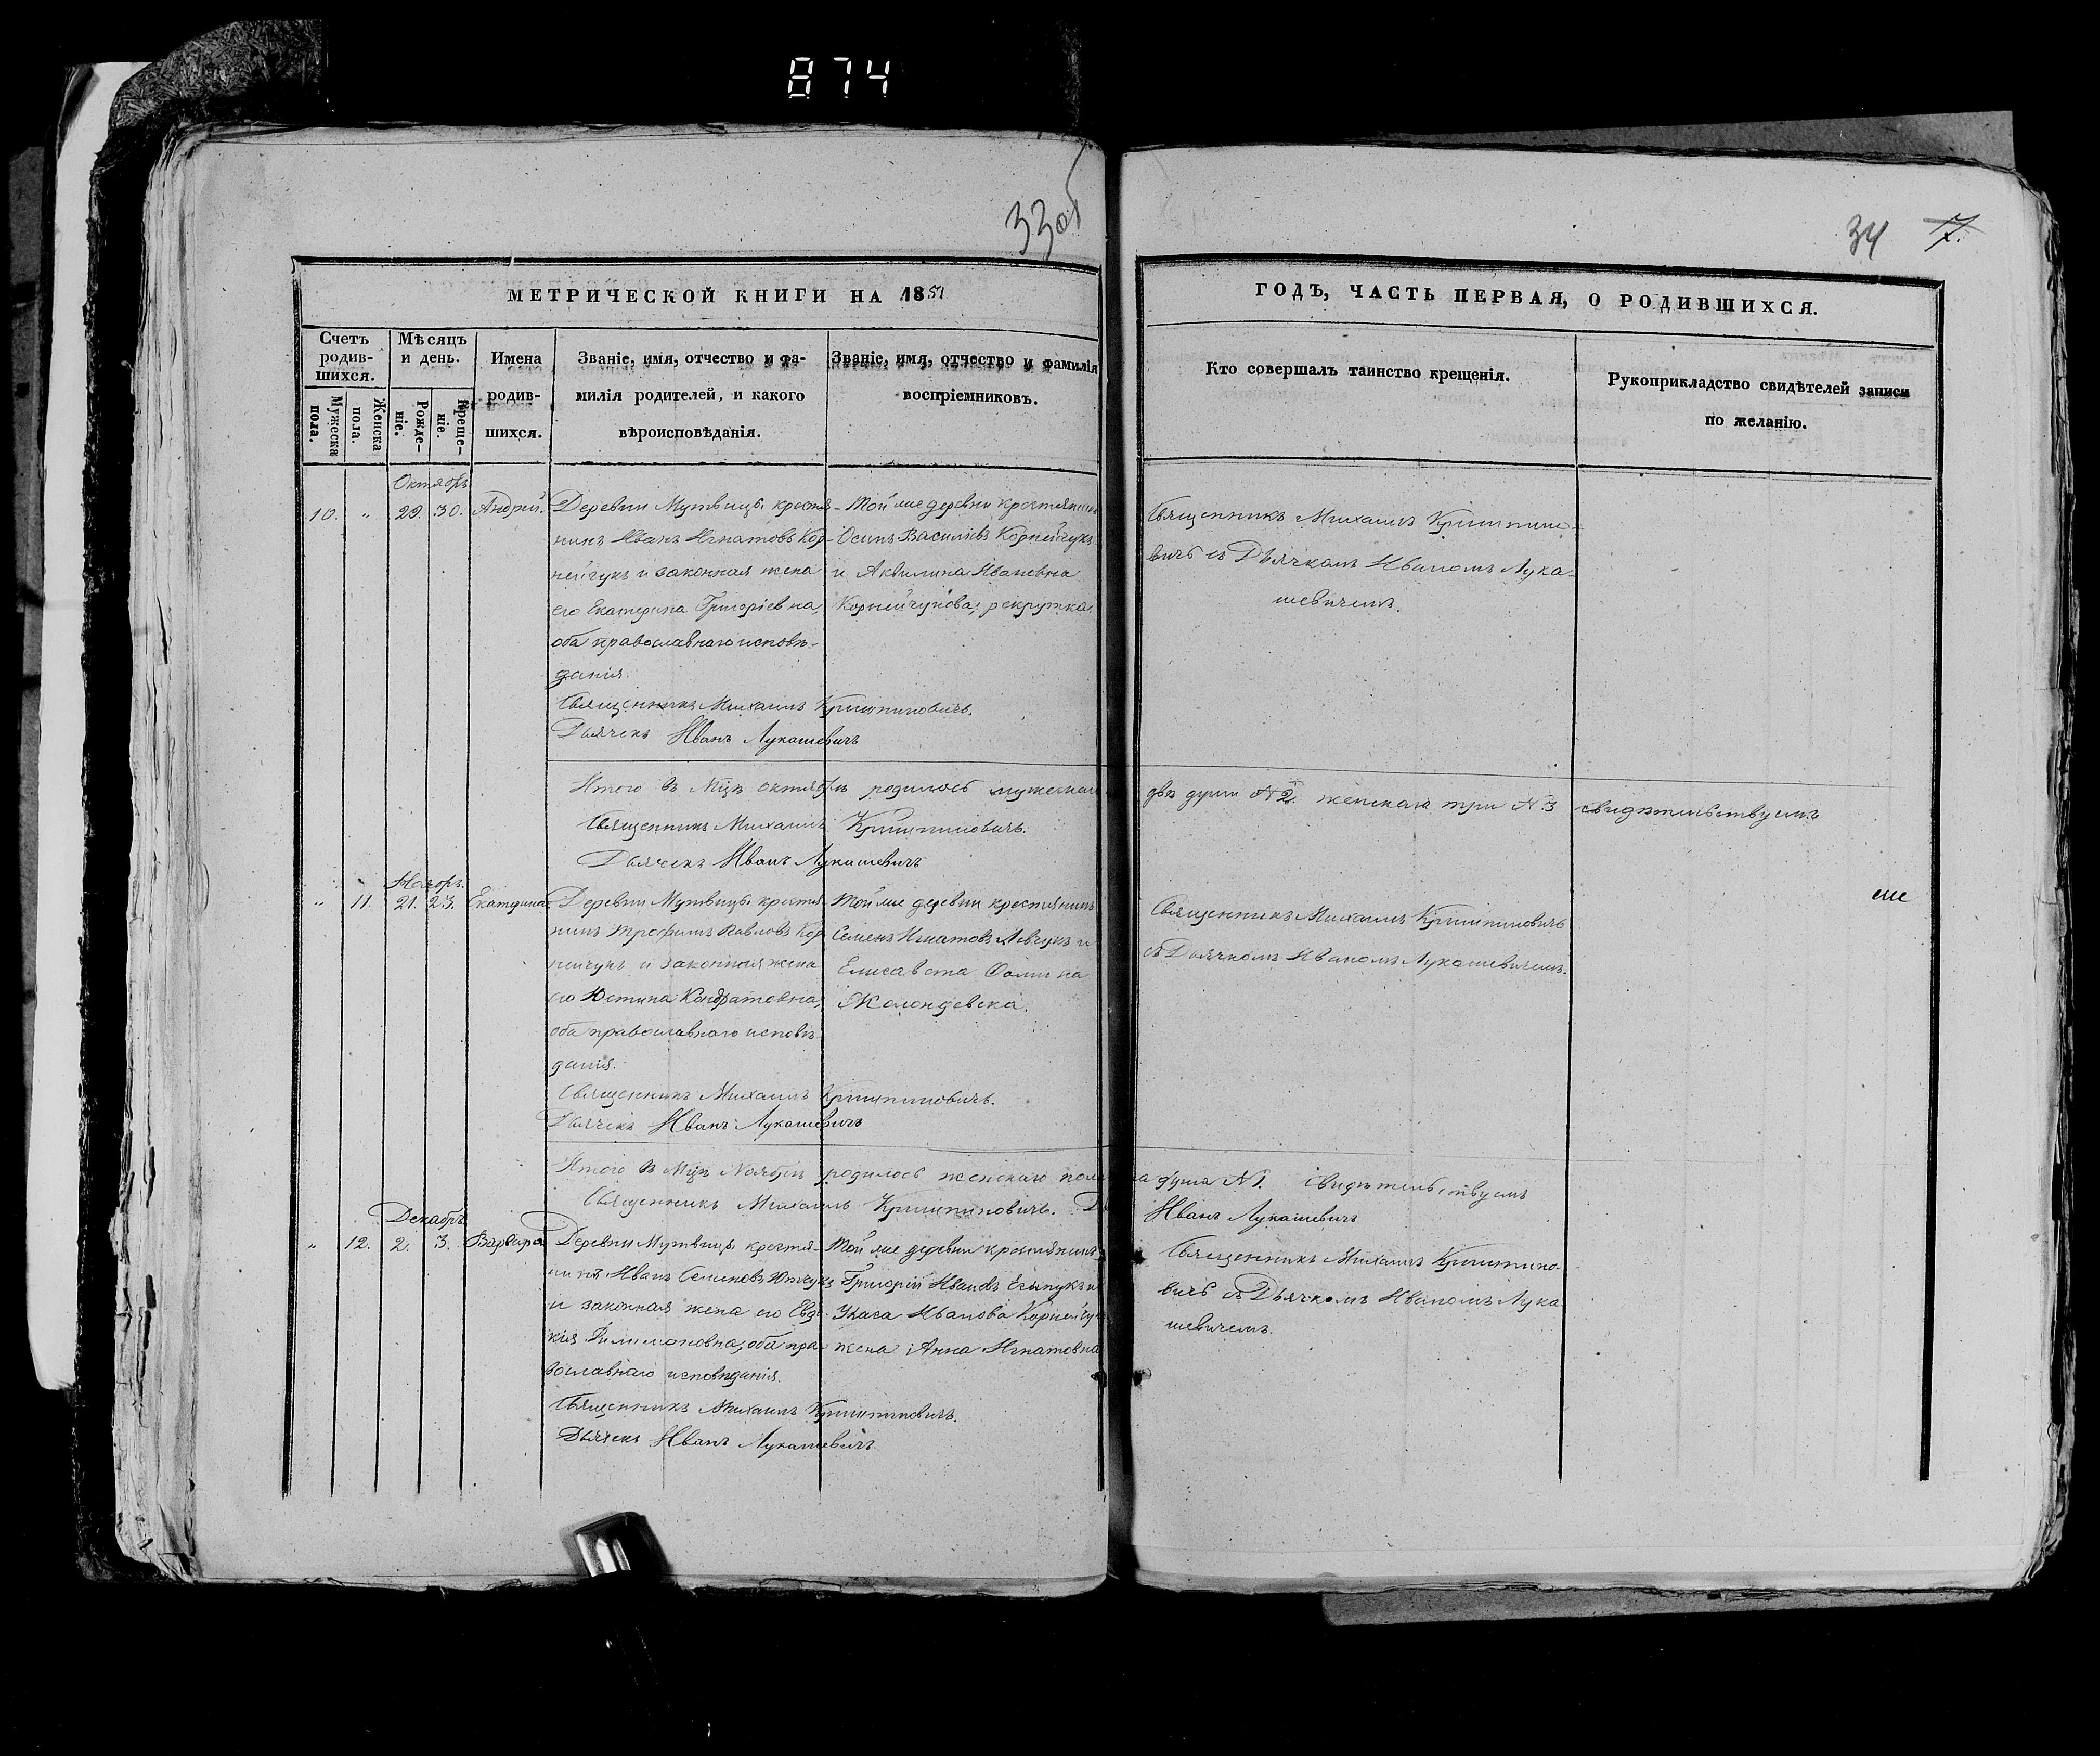 874
33об
34 7.
МЕТРИЧЕСКОЙ КНИГИ НА 1851
ГОДЪ, ЧАСТЬ ПЕРВАЯ, О РОДИВШИХСЯ.
Счетъ родив-шихся.
Мужеска пола.
Женска пола.
Мѣсяцъ и день.
Рожде-ніе.
Креще-ніе.
Имена родив-шихся.
Званіе, имя, отчество и фа-
милія родителей, и какого
вѣроисповѣданія.
Званіе, имя, отчество и фамилія
воспріемниковъ.
Кто совершалъ таинство крещенія.
Рукоприкладство свидѣтелей записи
по желанію.
Октябрь
10. " 29. 30. Андрей.
Деревни Мутвицы крестья-
нинъ Иванъ Игнатовъ Кор-
нейчукъ и законная жена
его Екатерина Григоріевна,
оба православнаго исповѣ-
данія.
Священникъ Михаилъ Криштиновичъ.
Дьячекъ Иванъ Лукашевичъ
Той же деревни крестьянинъ
Осипъ Васильевъ Корнейчукъ
и Акилина Ивановна
Корнейчукова, рекрутка.
Священникъ Михаилъ Криштино-
вичъ съ Дьячкомъ Иваномъ Лука-
шевичемъ.
Итого въ Мцѣ октябрѣ родилось мужескаго двѣ души №2. женскаго три №3 свидѣтельствуемъ
Священникъ Михаилъ Криштиновичъ.
Дьячекъ Иванъ Лукашевичъ
Ноябрь.
" 11. 21. 23. Екатерина
Деревни Мутвицы крестья-
нинъ Трофимъ Павловъ Кор
нейчукъ и законная жена
его Юстина Кондратовна,
оба православнаго исповѣ
данія.
Священникъ Михаилъ Криштиновичъ.
Дьячекъ Иванъ Лукашевичъ
Той же деревни крестьянинъ
Семенъ Игнатовъ Левчукъ и
Елисавета Фомина
Священникъ Михаилъ Криштиновичъ
съ Дьячкомъ Иваномъ Лукашевичемъ.
Итого въ Мцѣ Ноябрѣ родилось женскаго пола душа №1. Свидѣтельствуемъ
Священникъ Михаилъ Криштиновичъ.
Иванъ Лукашевичъ
Декабрь
" 12. 2. 3. Варвара
Деревни Мутвицы крестья-
нинъ Иванъ Семеновъ
и законная жена его Евдо-
кія Филимоновна, оба пра-
вославнаго исповѣданія.
Священникъ Михаилъ Криштиновичъ.
Дьячекъ Иванъ Лукашевичъ
Той же деревни крестьянинъ
Григорій Ивановъ и
Ивановa Корнейчука
жена Анна Игнатовна
Священникъ Михаилъ Криштино-
вичъ съ Дьячкомъ Иваномъ Лука
шевичемъ.